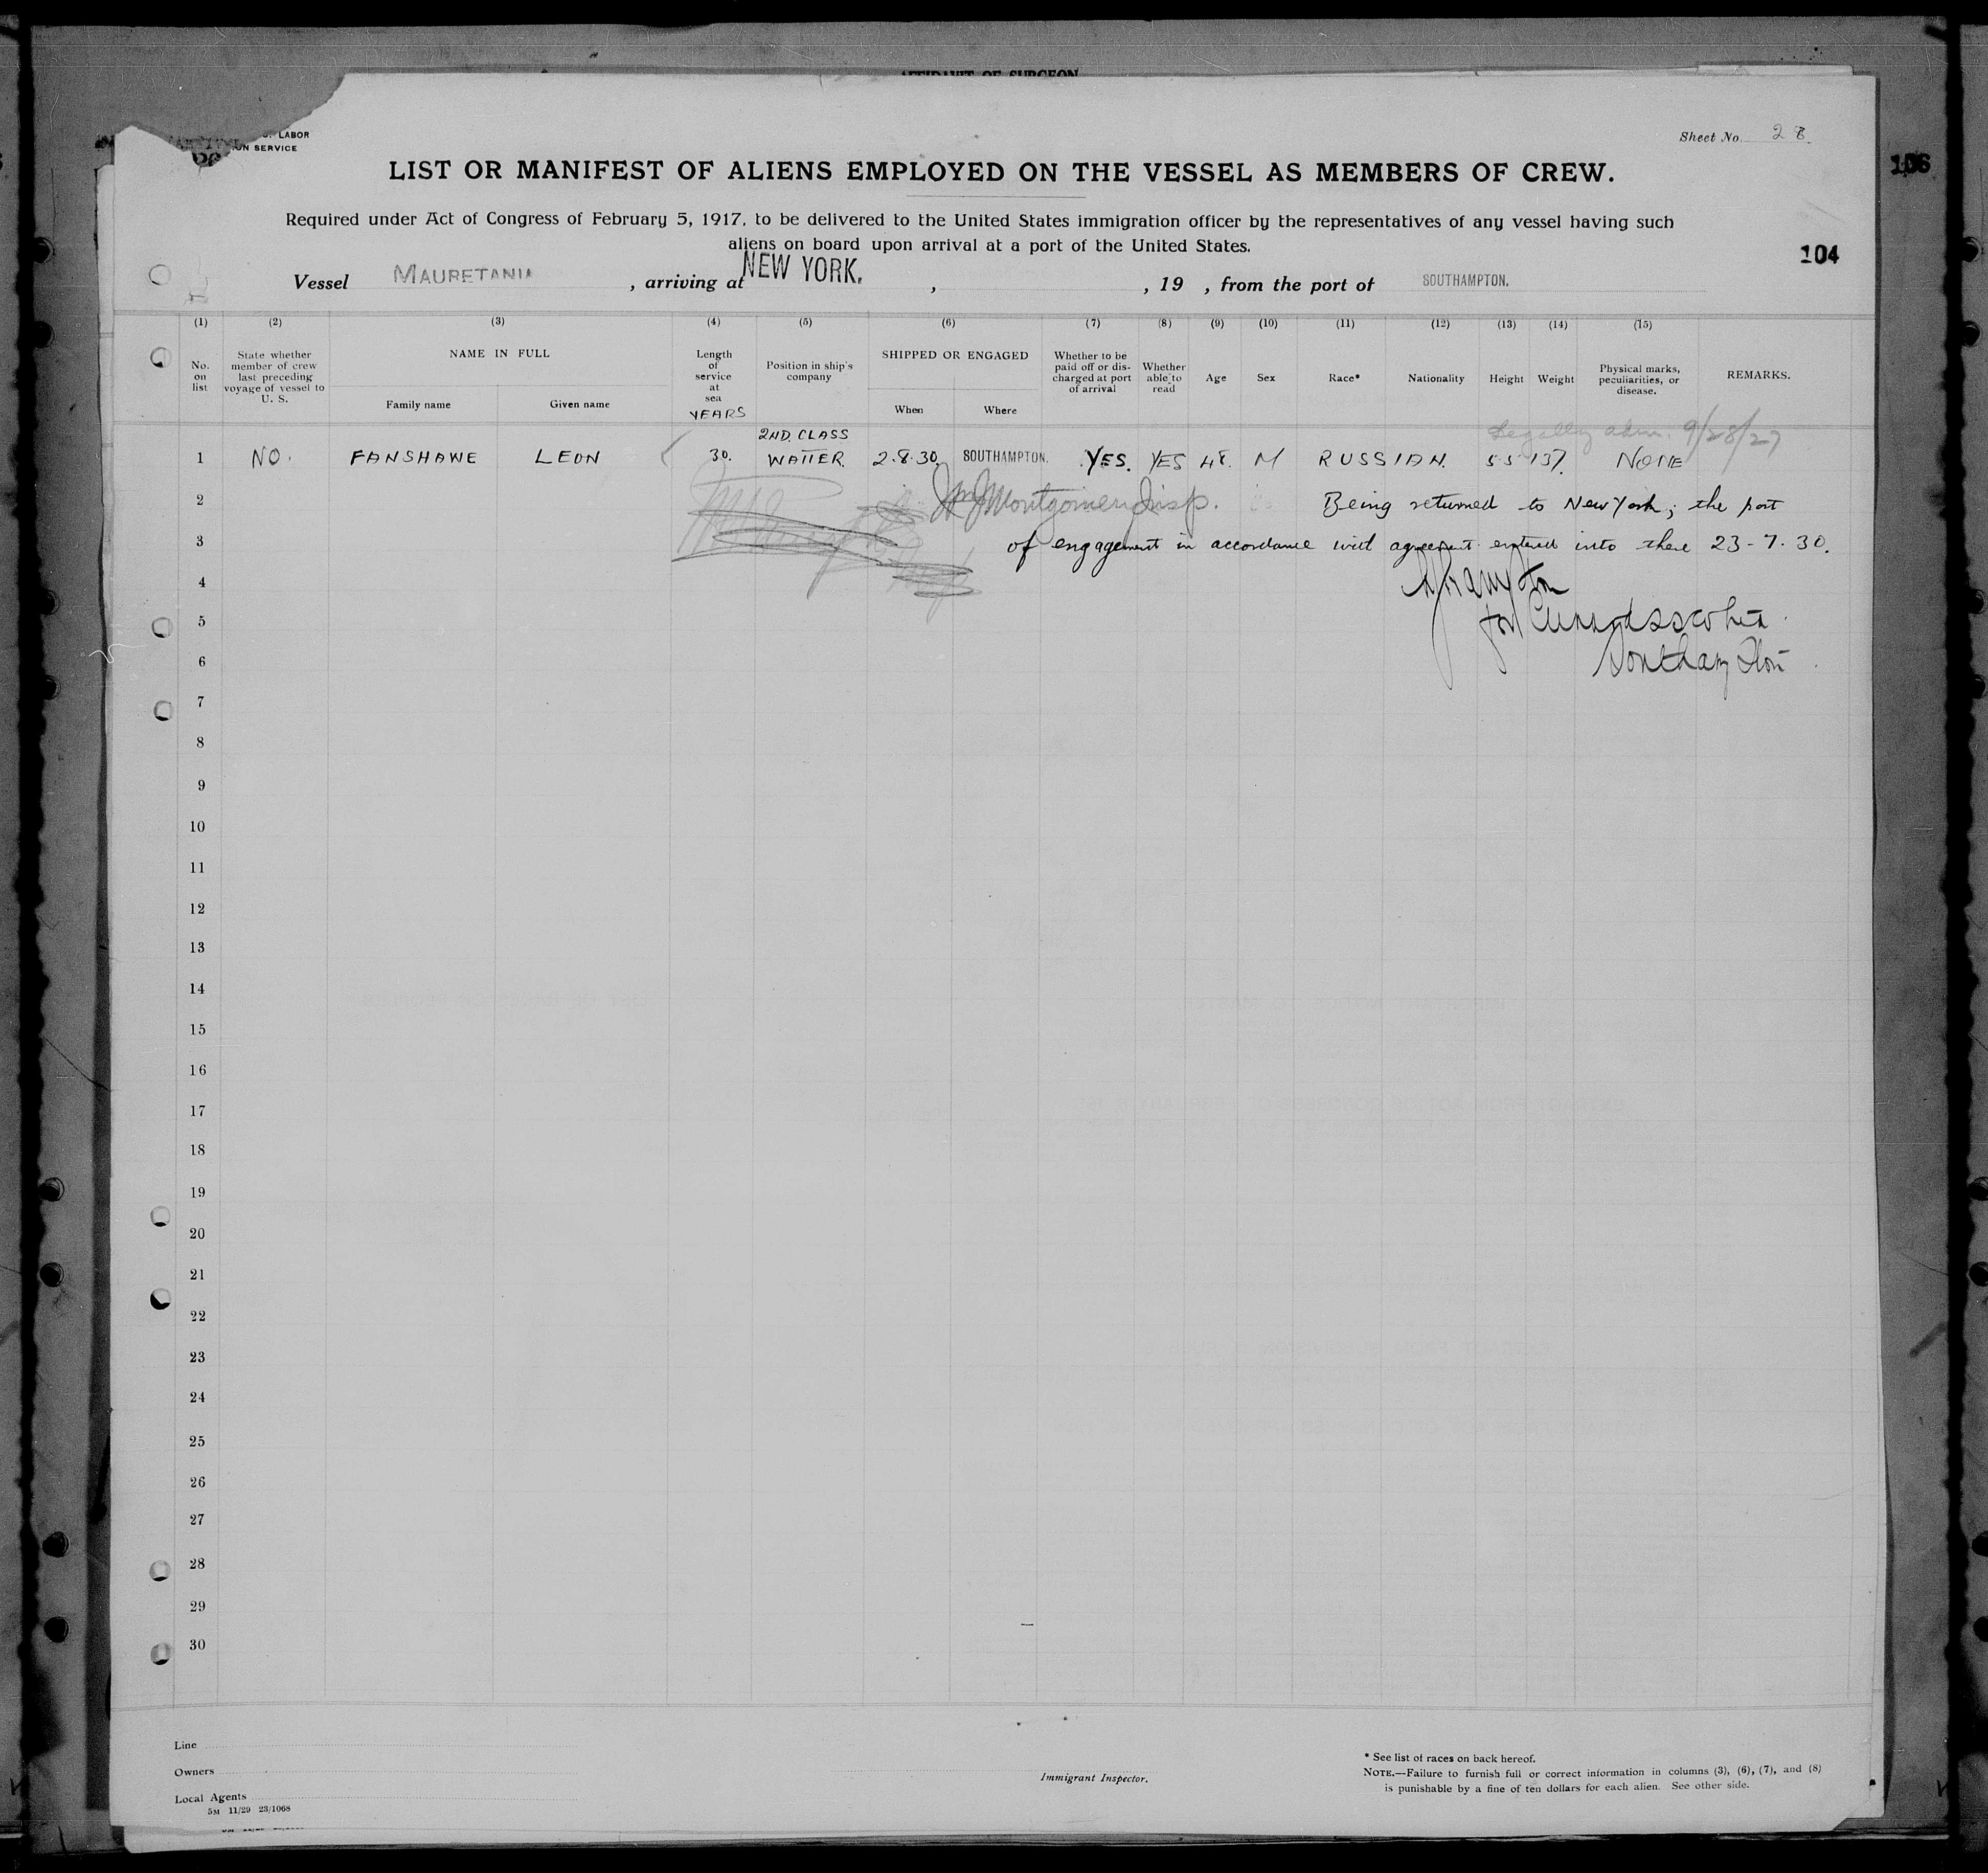 AFFIDAVIT OF SURGEON
LABOR
ON SERVICE
Sheet No. 28.
106
LIST OR MANIFEST OF ALIENS EMPLOYED ON THE VESSEL AS MEMBERS OF CREW.
Required under Act of Congress of February 5, 1917, to be delivered to the United States immigration officer by the representatives of any vessel having such
aliens on board upon arrival at a port of the United States.
104
Vessel MAURETANIA , arriving at NEW YORK. , , 19 , from the port of SOUTHAMPTON.
(1) (2) (3) (4) (5) (6) (7) (8) (9) (10) (11) (12) (13) (14) (15)
No. on list
State whether member of crew last preceding voyage of vessel to U. S.
NAME IN FULL
Family name Given name
Length of service at sea YEARS
Position in ship's company
SHIPPED OR ENGAGED
When Where
Whether to be paid off or discharged at port of arrival
Whether able to read
Age
Sex
Race*
Nationality
Height
Weight
Physical marks, peculiarities, or disease.
REMARKS.
Legally adm. 9/28/27
2ND. CLASS
1 NO. FANSHAWE LEON 30. WAITER. 2.8.30. SOUTHAMPTON. YES. YES 48. M RUSSIAN. 5 5 137. NONE
2 Montgomery Insp. Being returned to New York; the port
3 of engagement in accordance with agreement entered into there 23-7-30.
4
5 for
6 Southampton
7
8
9
10
11
12
13
14
15
16
17
18
19
20
21
22
23
24
25
26
27
28
29
30
Line
Owners
Local Agents
5M 11/29 23/1068
Immigrant Inspector.
* See list of races on back hereof.
NOTE.—Failure to furnish full or correct information in columns (3), (6), (7), and (8)
is punishable by a fine of ten dollars for each alien. See other side.